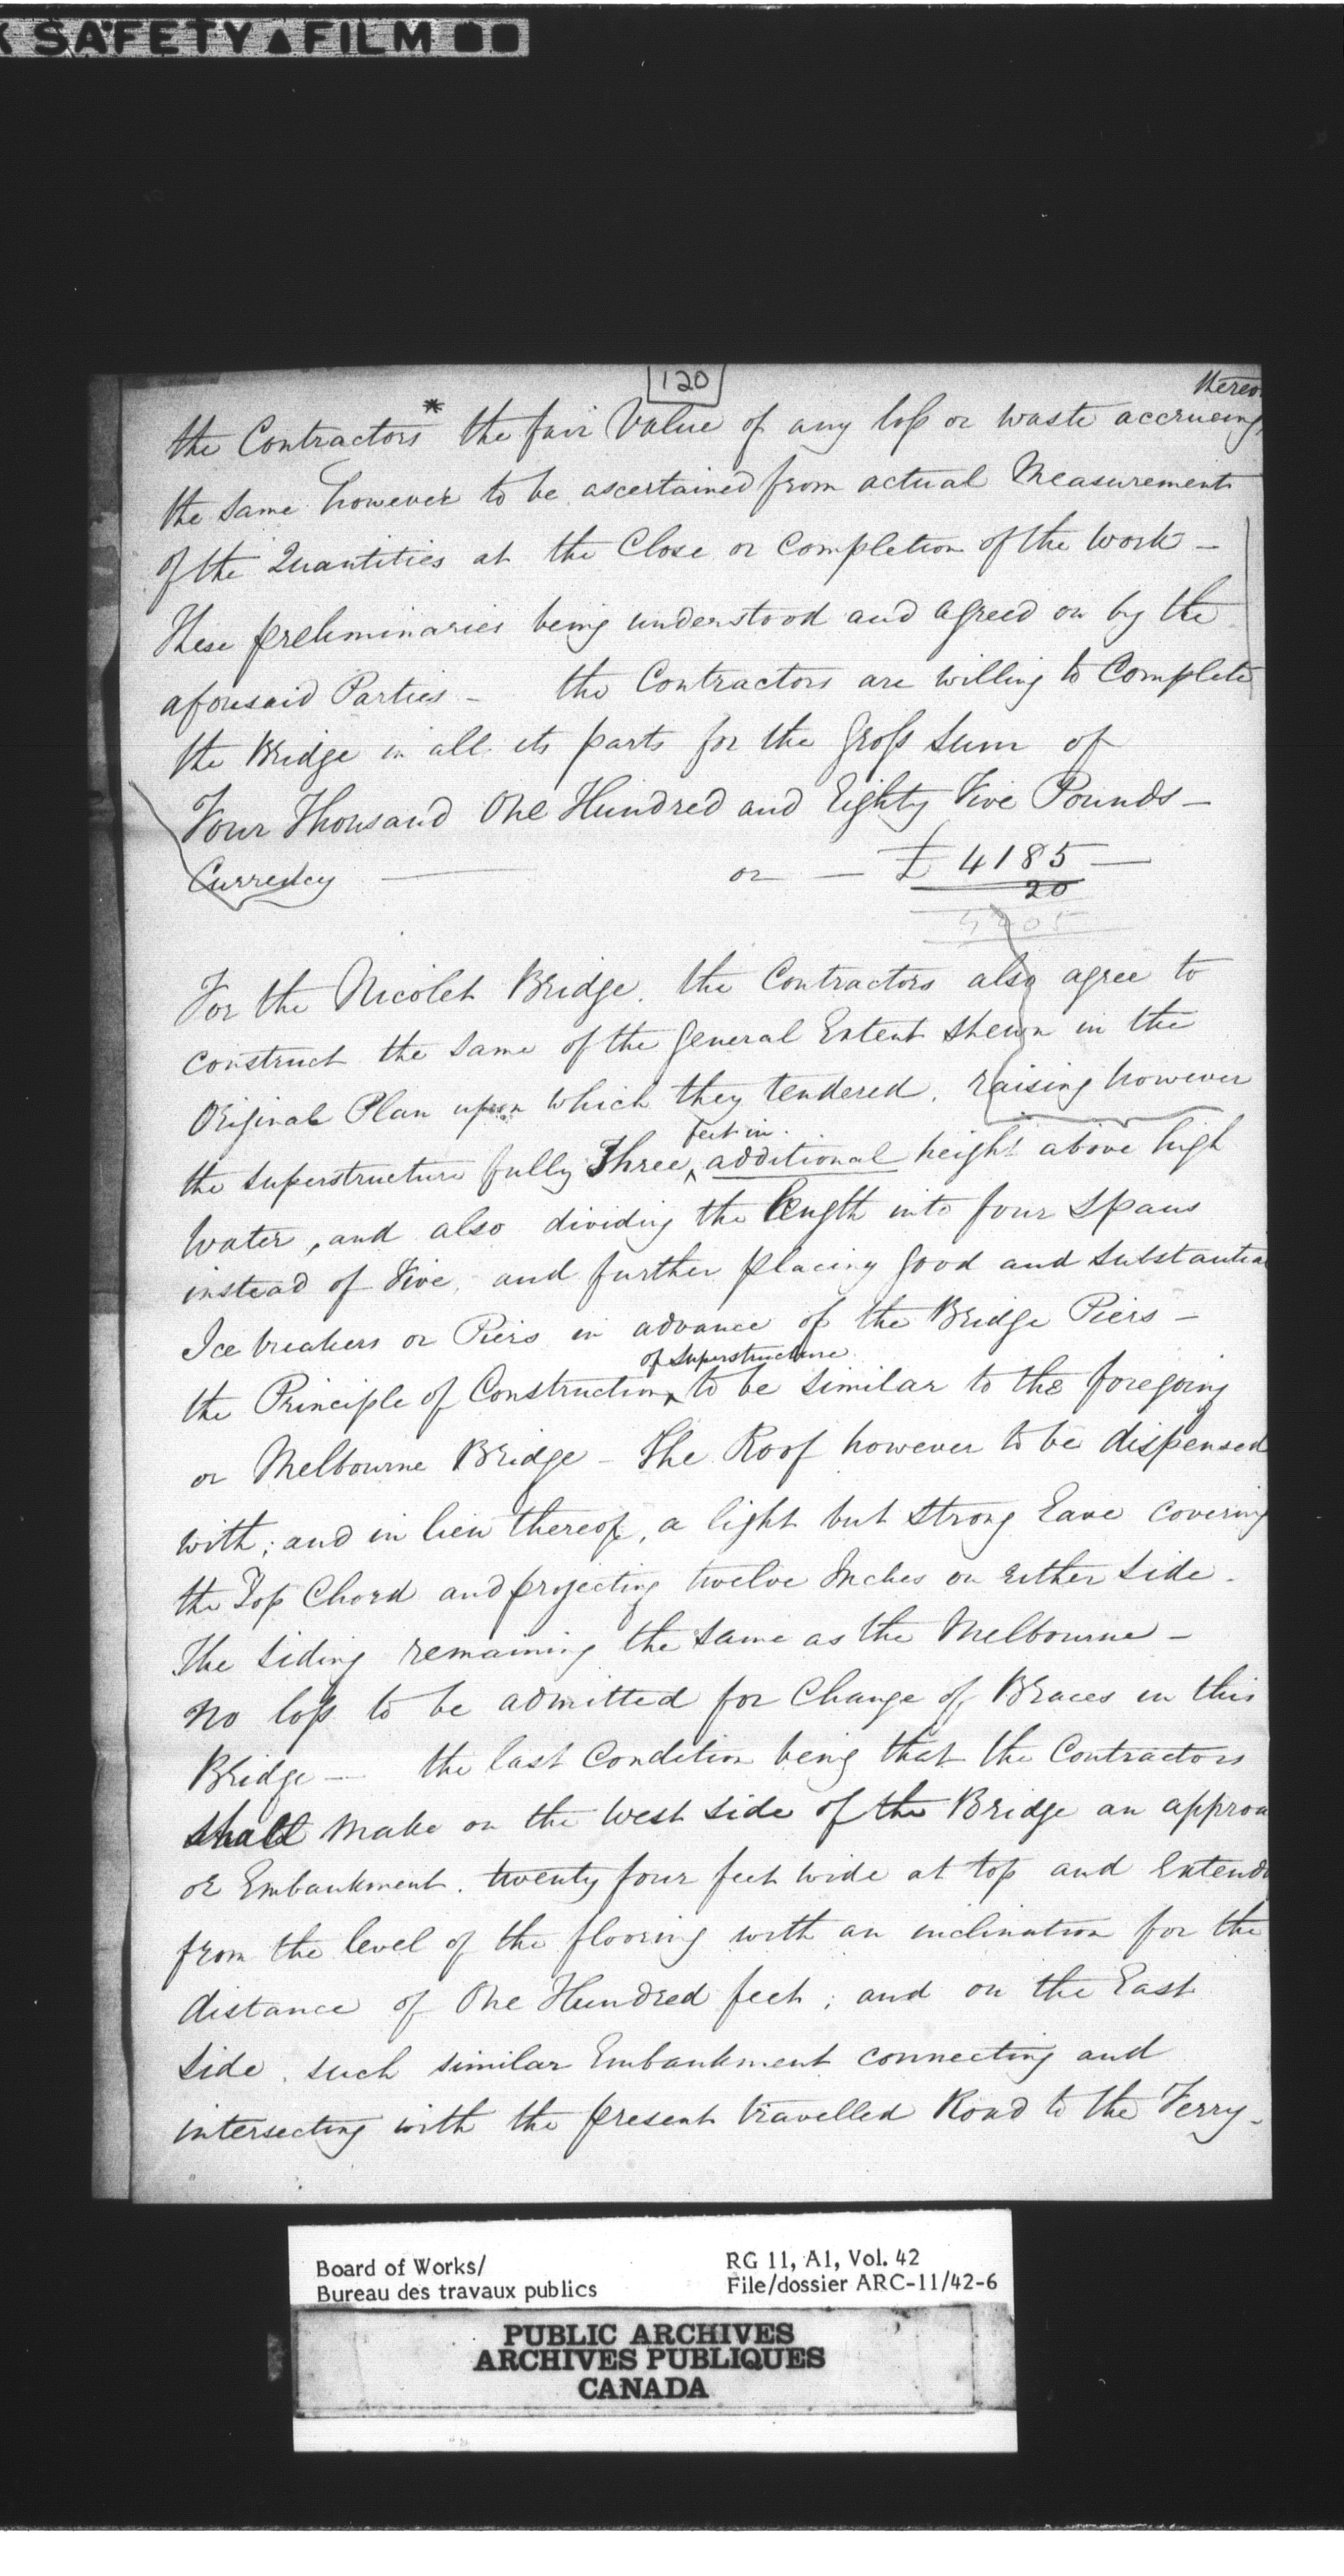 SAFETY FILM
120
thereo
the Contractors * the fair Value of any loss or waste accrueing
the same however to be ascertained from actual Measurement
of the Quantities at the Close or Completion of the work –
These preliminaries being understood and agreed on by the
aforesaid Parties – the Contractors are willing to Complete
the Bridge in all its parts for the Gross Sum of
Four Thousand One Hundred and Eighty Five Pounds –
Currency — or — £ 4185 —
20
For the Nicolet Bridge. the Contractors also agree to
construct the same of the General Extent shewn in the
Original Plan upon which they tendered. raising however
feet in
the superstructure fully Three additional height above high
Water, and also dividing the length into four Spans
instead of Five, and further placing good and substantia
Ice breakers or Piers in advance of the Bridge Piers –
of Superstructure
the Principle of Construction to be similar to the foregoing
or Melbourne Bridge – The Roof however to be dispensed
with; and in lieu thereof, a light but strong Eave covering
the Top Chord and projecting twelve Inches on either Side.
The Siding remaining the same as the Melbourne –
No loss to be admitted for Change of Braces in this
Bridge — the last Condition being that the Contractors
shall make on the West side of the Bridge an approa
or Embankment. twenty four feet wide at top and Extend
from the level of the flooring with an inclination for the
distance of One Hundred feet; and on the East
Side. such similar Embankment connecting and
intersecting with the present travelled Road to the Ferry –
Board of Works/
Bureau des travaux publics
RG 11, A1, Vol. 42
File/dossier ARC-11/42-6
PUBLIC ARCHIVES
ARCHIVES PUBLIQUES
CANADA